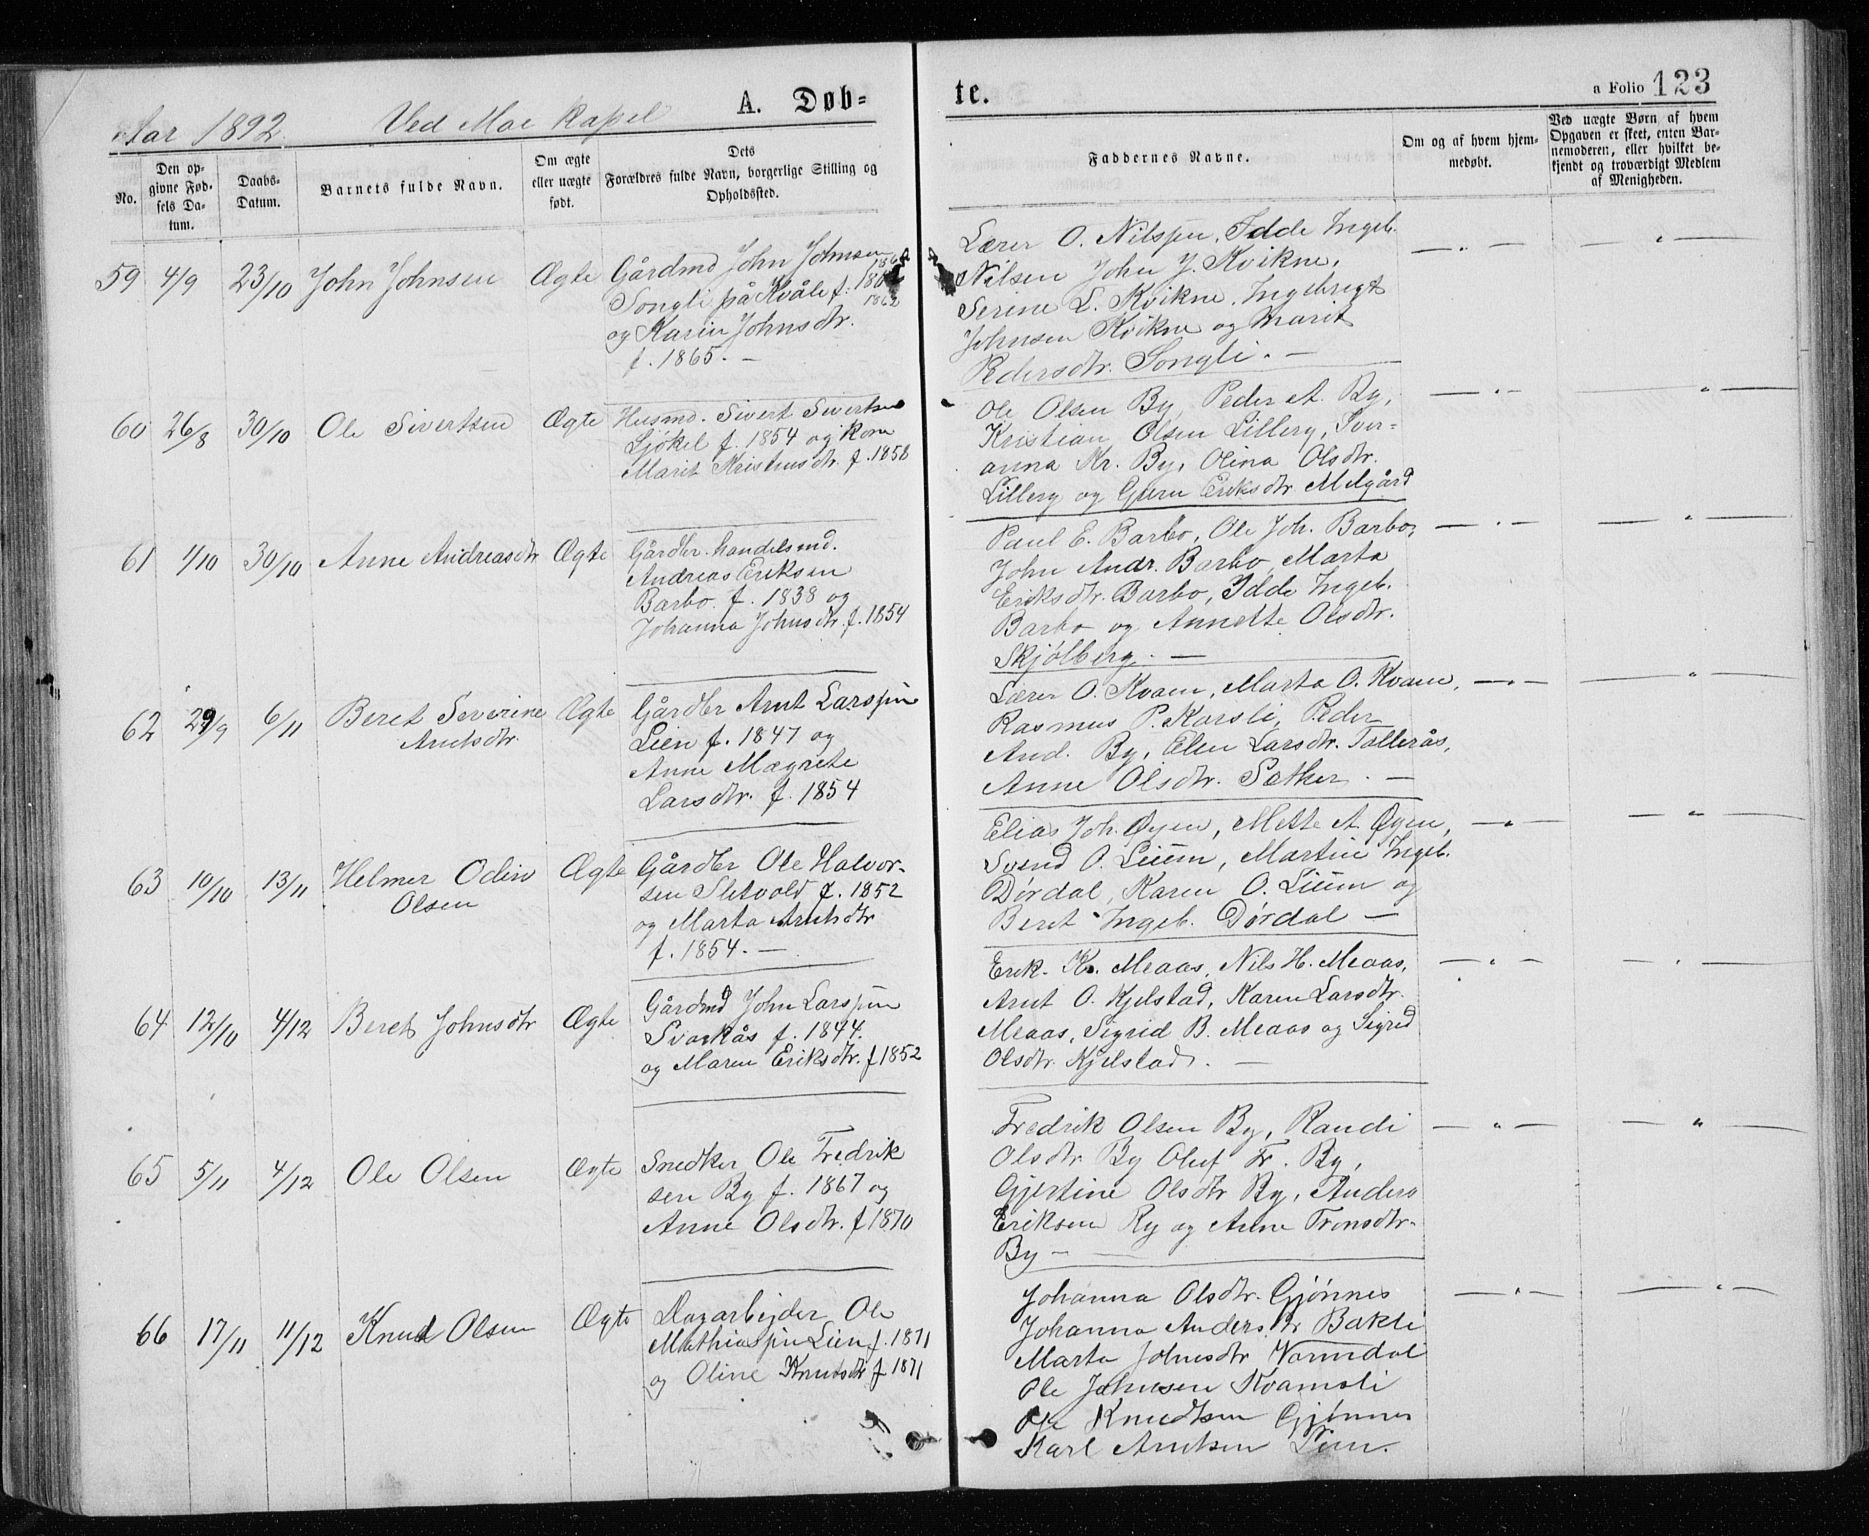 Aar 1892. Ved Moe Kapel A. Døb=
te. a Folio 123
No.
Den op-
givne Fød-
sels Da-
tum.
Daabs-
Datum.
Barnets fulde Navn.
Om ægte
eller uægte
født.
Dets
Forældres fulde Navn, borgerlige Stilling og
Opholdssted.
Faddernes Navne.
Om og af hvem hjem-
medøbt.
Ved uægte Børn af hvem
Opgaven er skeet, enten Bar-
nemoderen, eller hvilket be-
kjendt og troværdigt Medlem
af Menigheden.
59 4/9 23/10 John Johnsen Ægte
Gårdmd John Johnsen
Songli på Kvåle f.
1862
og Karen Johnsdtr.
f. 1865. —
Lærer O. Nilssen, Idde Ingeb.
Nilsen John J. Kvikne,
Serine L. Kvikne, Ingebrigt
Johnsen Kvikne og Marit
Pedersdtr. Songli. —
60 26/8 30/10 Ole Sivertsen Ægte
Husmd. Sivert Sivertsen
Sjøkel f. 1854 og kone
Marit Kristensdtr. f. 1858
Ole Olsen By, Peder A. By,
Kristian Olsen Lillery, Sver-
anna Kr. By, Olina Olsdtr.
Lillery og Guru Eriksdtr Melgård
61 1/10 30/10 Anne Andreasdtr Ægte
Gårdbr. handelsmd.
Andreas Eriksen
Barbo. f. 1838 og
Johanna Johnsdtr. f. 1854
Paul E. Barbo, Ole Joh. Barbo,
John Andr. Barbo, Marta
Eriksdtr. Barbo, Idde Ingeb.
Barbo og Annette Olsdtr.
Skjølberg. —
62 29/9 6/11 Beret Severine
Arntsdtr. Ægte
Gårdbr Arnt Larssen
Lien f. 1847 og
Anne Magrete
Larsdtr. f. 1854
Lærer O. Kvam, Marta O. Kvam,
Rasmus P. Karsli, Peder
And. By, Elen Larsdtr. Tallerås,
Anne Olsdtr. Sæther. —
63 10/10 13/11 Helmer Odin
Olsen Ægte
Gårdbr Ole Halvor-
sen Sletvold f. 1852
og Marta Arntsdtr
f. 1854. —
Elias Joh. Øyen, Mette A. Øyen,
Svend O. Lium, Martin Ingeb.
Dørdal, Karen O. Lium og
Beret Ingeb. Dørdal —
64 12/10 4/12 Beret Johnsdtr Ægte
Gårdmd John Larssen
Svorkås f. 1844.
og Maren Eriksdtr. f 1852
Erik Kr. Meaas, Nils H. Meaas,
Arnt O. Kjelstad, Karen Larsdtr.
Meaas, Sigrid B. Meaas og Sigrid
Olsdtr. Kjelstad. —
65 5/11 4/12 Ole Olsen Ægte
Snedker Ole Fredrik
sen By f. 1867 og
Anne Olsdtr. f 1870
Fredrik Olsen By, Randi
Olsdtr By Oluf Fr. By,
Gjertine Olsdtr By, Anders
Eriksen Ry og Anne Tronsdtr-
By —
66 17/11 11/12 Knut Olsen Ægte
Dagarbejder Ole
Mathiassen Lien f. 1871
og Oline Knutsdtr f 1871
Johanna Olsdtr. Gjønnes
Johanna Andersdtr Bakli
Marta Johnsdtr Vormdal
Ole Johnsen Kvamsli
Ole Knudtsen Gjønnes
Karl Arntsen Lium.